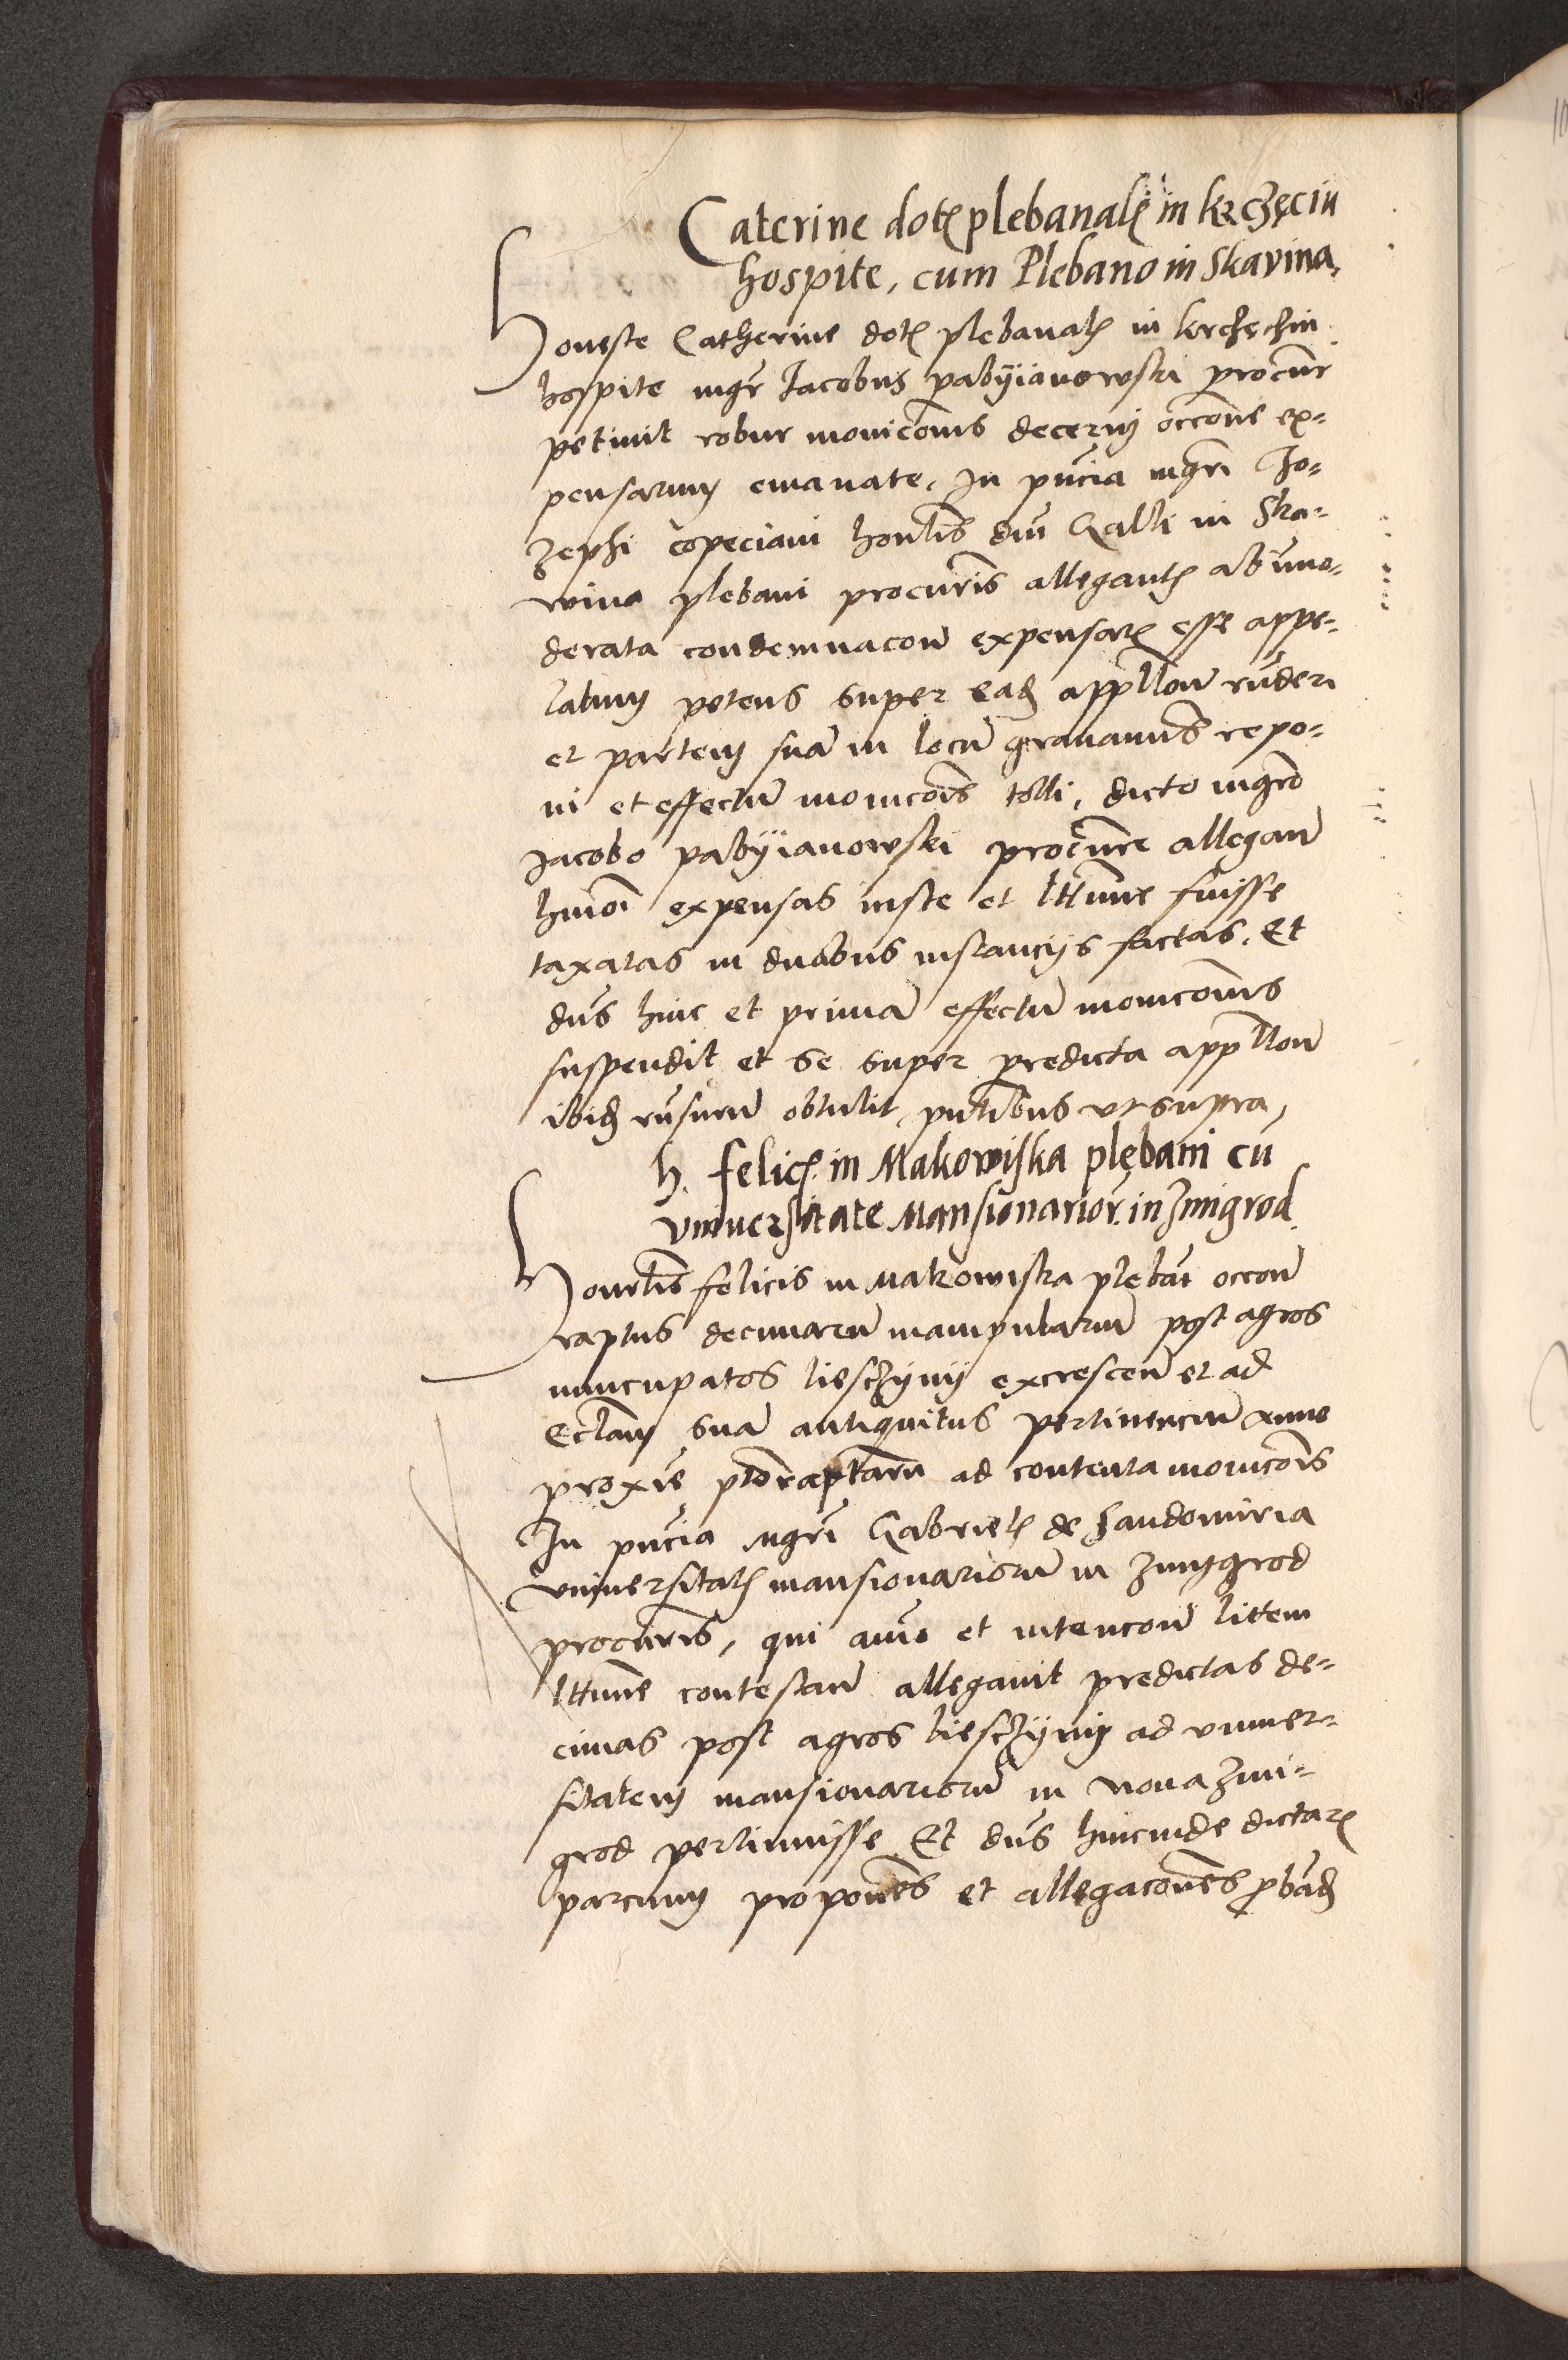 Caterine dotis plebanalis in krczęciu
hospite, cum Plebano in Skavina,
Honeste Catherine dotis plebanalis in krchęchin
hospite mgr Iacobus pabyianowski procur
petiuit robur monicōnis decerni occōne ex-
pensarum emanate, In pncia mgri Io-
zephi copeciani honlis dni Galli in Ska-
wina plebani procuris allegantis ab immo-
derata condemnacōn expensarum esse appe-
latum petens super eadem appllon rnderi
et partem sua in locu grauamīs repo-
ni et effectu monicōis tolli, dicto mgro
Iacobo pabyianowski procure allegan
hmoi expensas iuste et lttime fuisse
taxatas in duabus instancijs factas. Et
dns huic et prima effectu monicōnis
suspendit et se super predicta appllon
ibidem rnsuru obtulit, pntibus vt supra,
h. felicis in Makowiska plebani cu
vniuersitate Mansionarior in Zmigrod.
Honrlis felicis in Makowiska plebai occon
raptus decimaru manipularium post agros
nuncupatos liesczyny excrescen et ad
Ecclam sua antiquitus pertinenciu anno
proxie pto raptaru ad contenta monicōis
In pncia mgri Gabrielis de Sandomiria
vniuersitatis mansionarioru in Zmygrod
procuris, qui aīo et intencōn littem
lttime contestan allegauit predictas de-
cimas post agros liesczyny ad vniuer-
sitatem mansionarioru in noua Zmi-
grod pertinuisse Et dns hincinde dictarum
parcium propōnes et allegacōnes probad